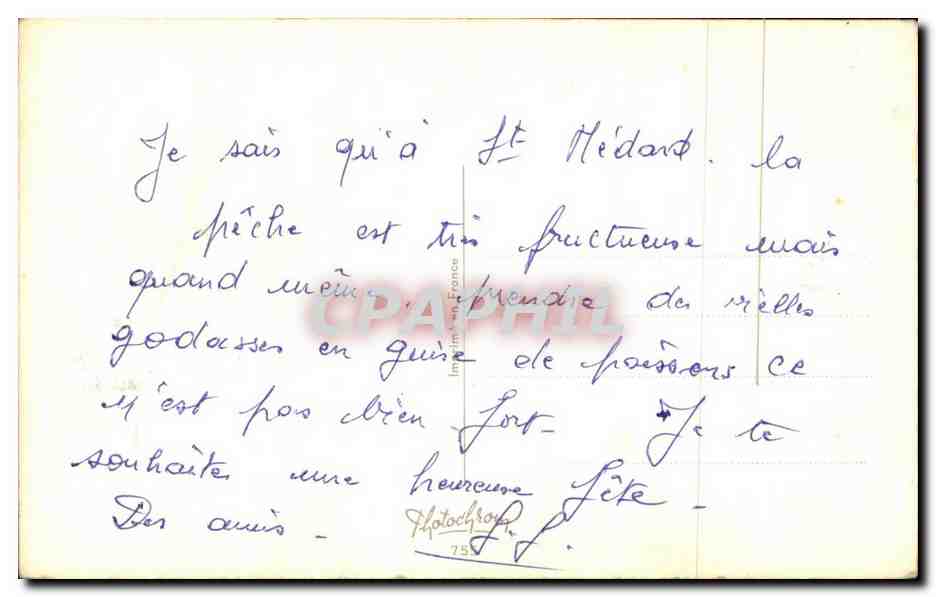 Je sais qu'à St Médard. la
pêche est très fructueuse mais
quand même. prendre des vielles
godasses en guise de poissons ce
n'est pas bien fort - Je te
souhaites une heureuse fête -
Des amis -
CPAPHIL
Imprimé en France
Photochrom